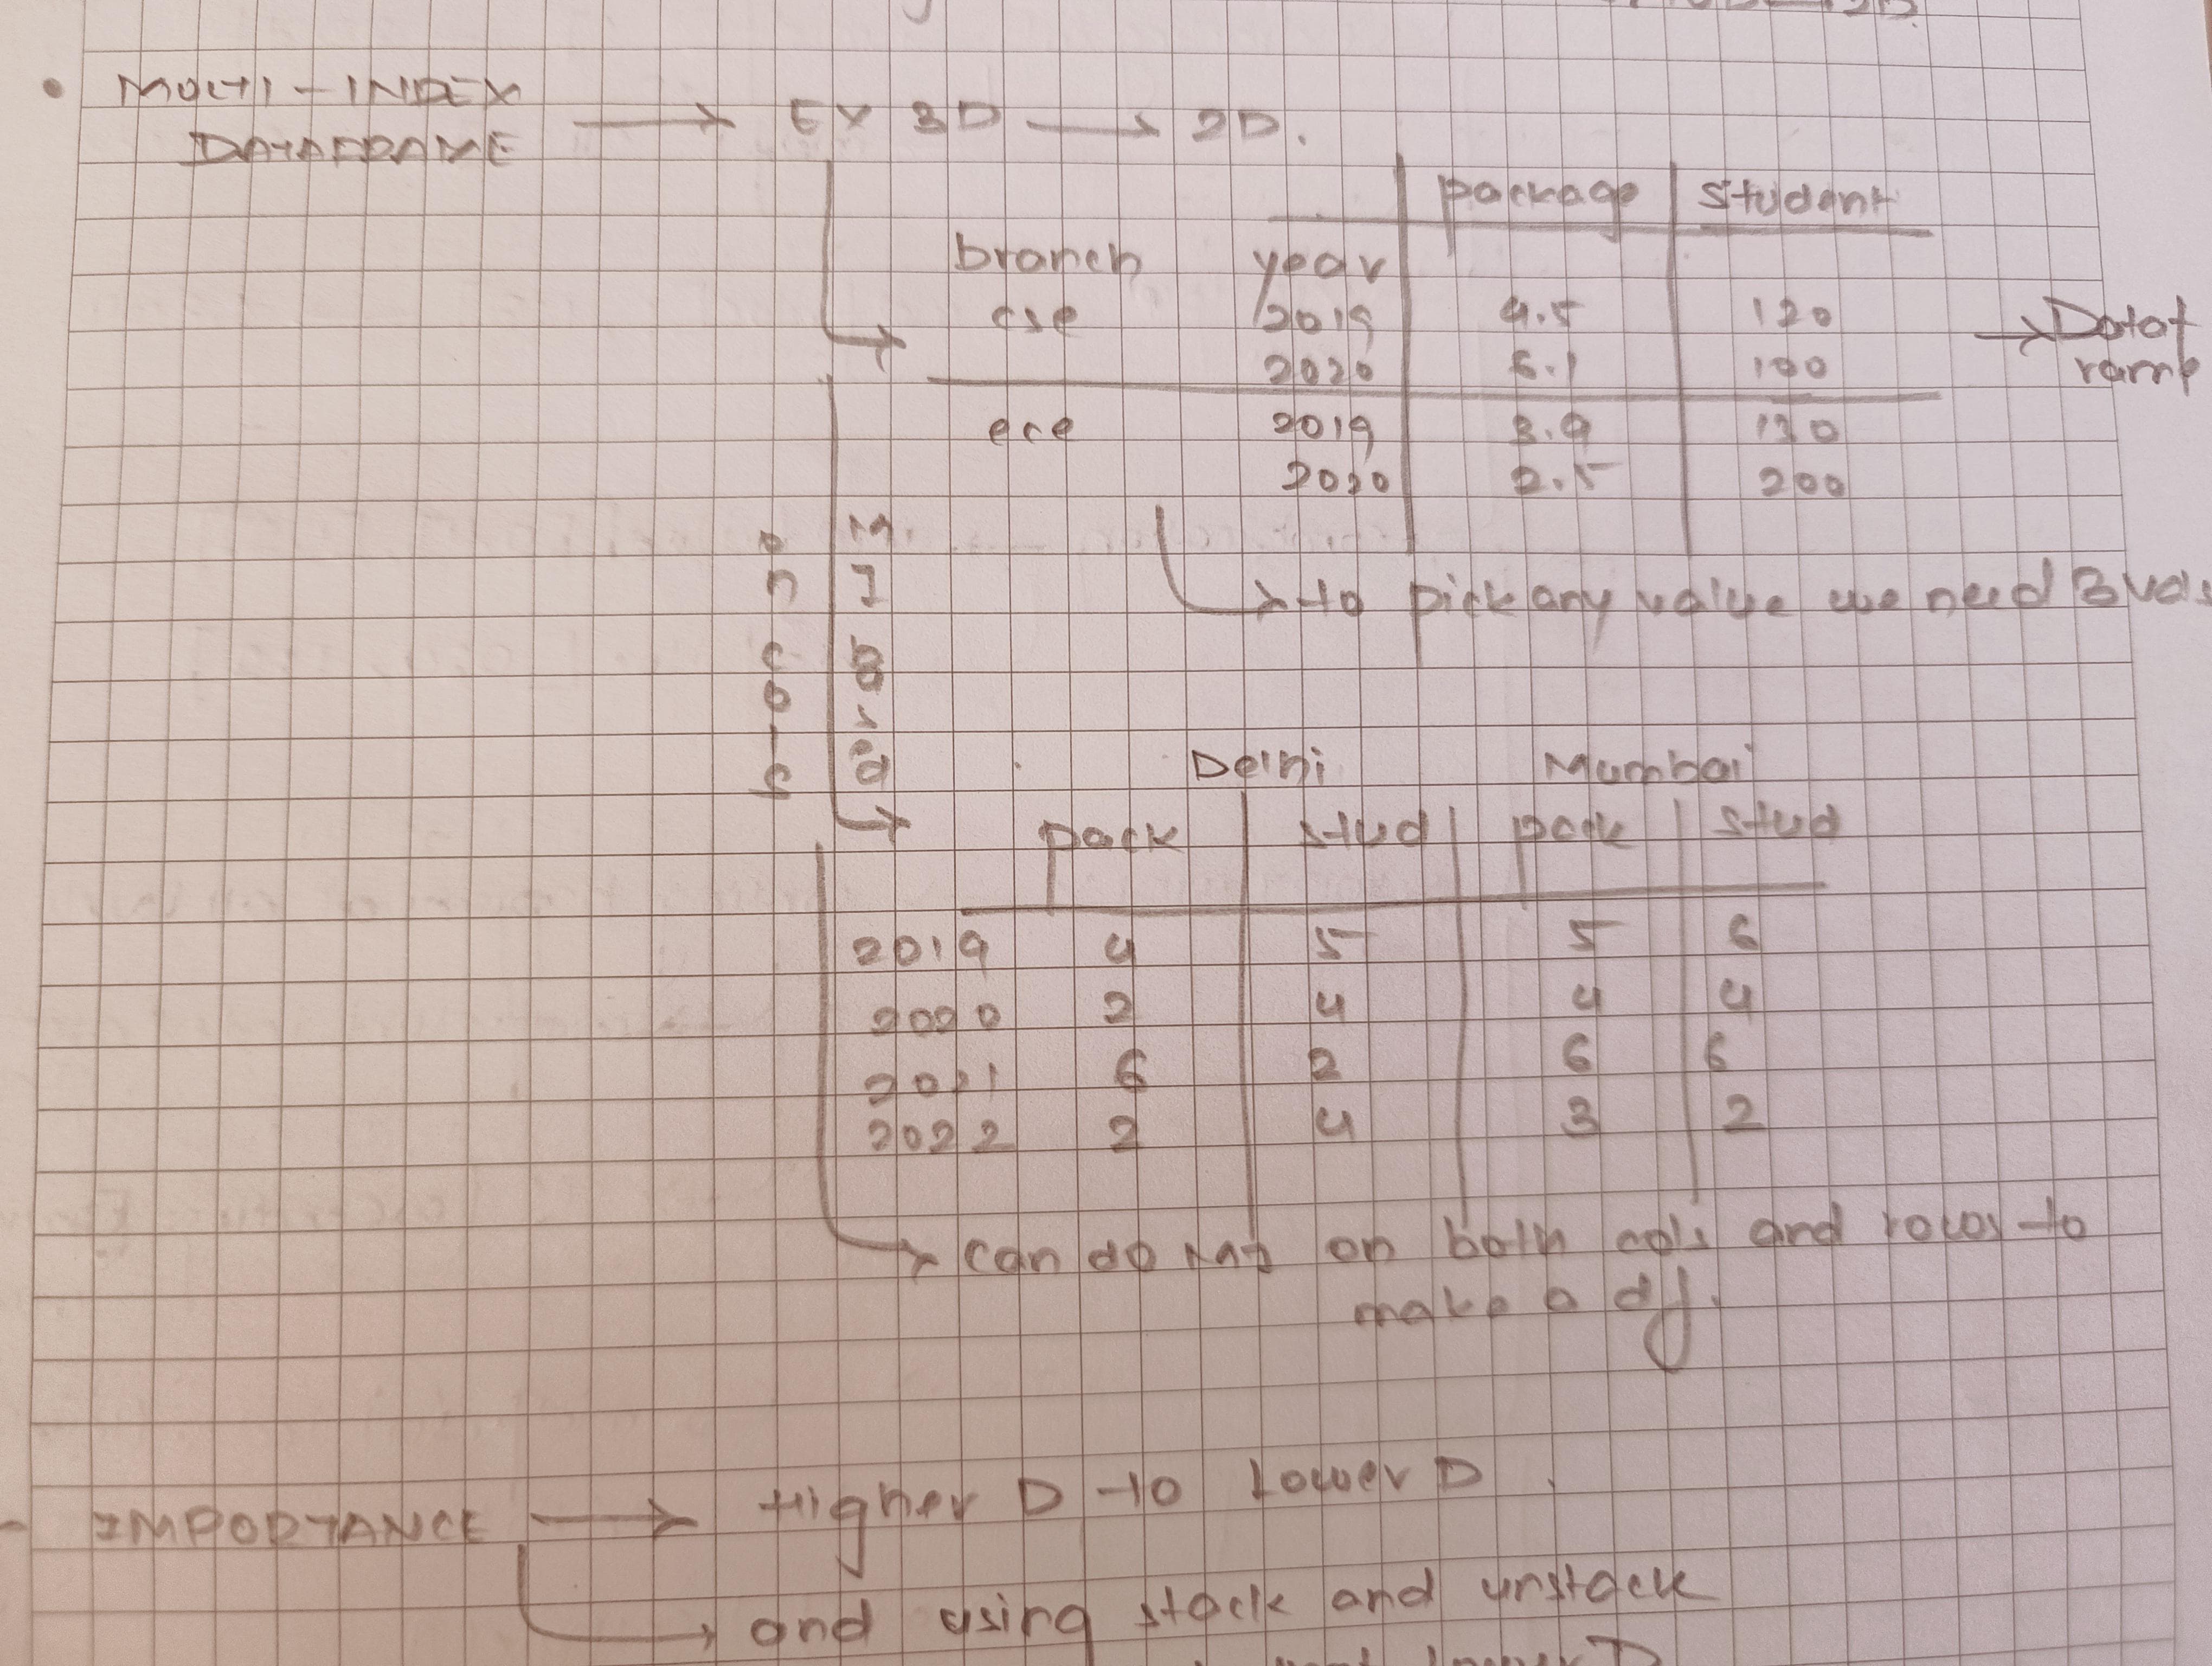 • MULTI-INDEX
DATAFRAME → EX 3D → 2D.
package | student
branch year
cse 2019 4.5 120
2020 6.1 100
→ Dataf
rame
ece 2019 3.9 130
2020 2.5 200
→ to pick any value we need 3 vals
MI
based
on
cols
Delhi Mumbai
pack | stud | pack | stud
2019 4 5 5 6
2020 2 4 4 4
2021 6 2 6 6
2022 2 4 3 2
→ can do on both cols and rows to
make a df.
- IMPORTANCE → Higher D to Lower D.
→ and using stack and unstack
lower D